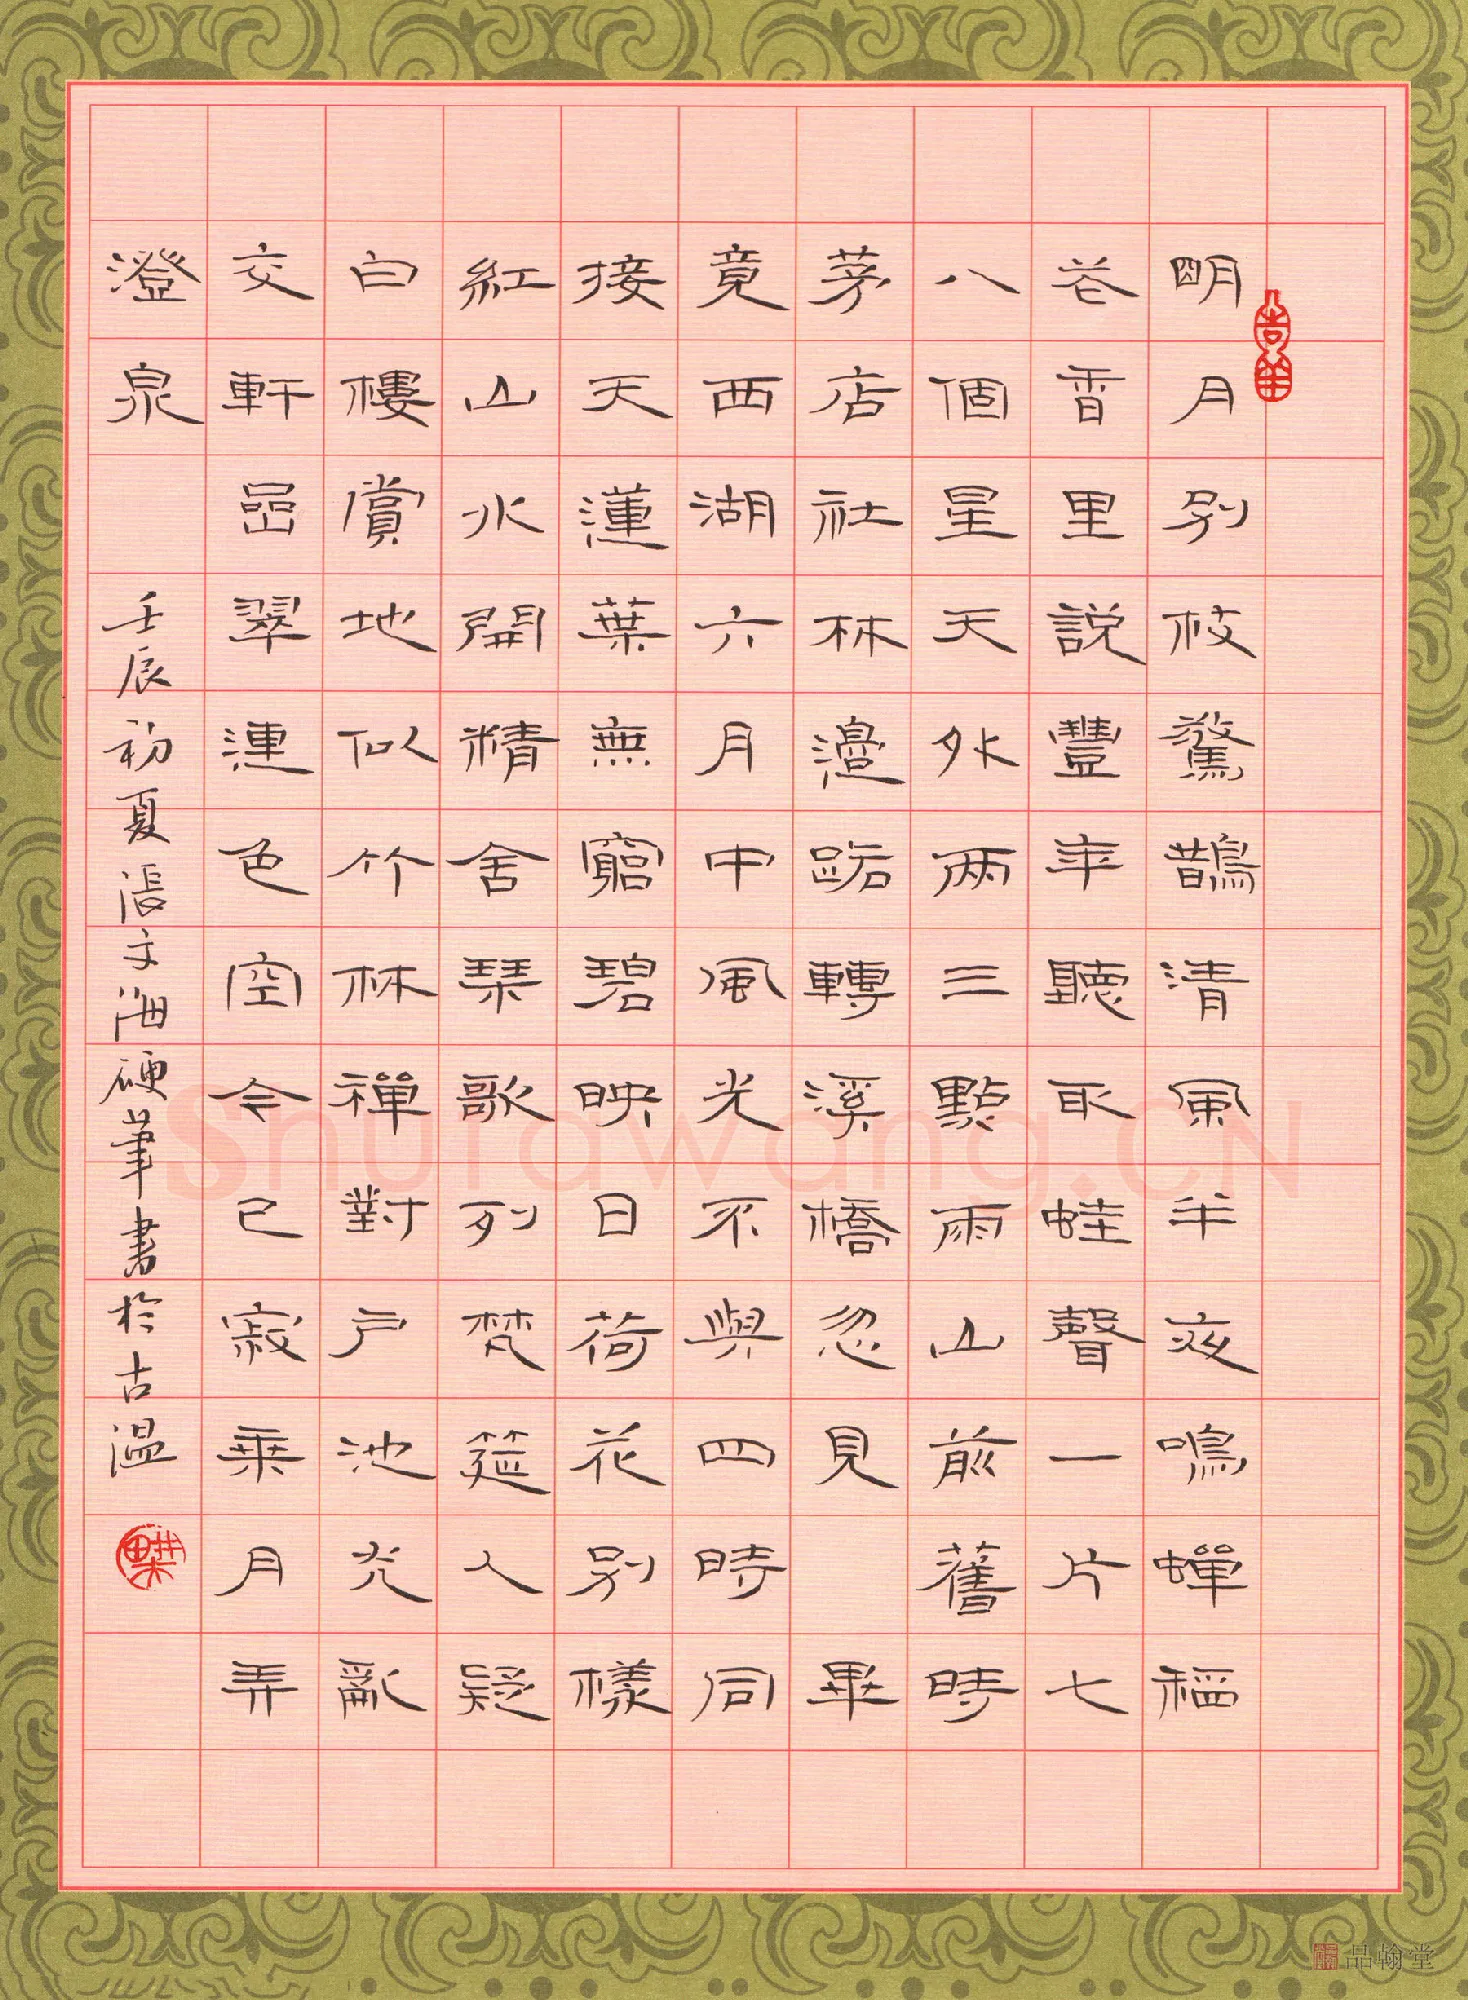 明月別枝驚鵲清風半夜鳴蟬稻
花香里説豐年聽取蛙聲一片七
八個星天外兩三點雨山前舊時
茅店社林邊路轉溪橋忽見 畢
竟西湖六月中風光不與四時同
接天蓮葉無窮碧映日荷花別樣
紅山水開精舍琴歌列梵筵人疑
白樓賞地似竹林禪對戶池光亂
交軒嵒翠連色空今已寂乘月弄
澄泉
壬辰初夏張文海硬筆書於古溫
Shufawang.CN
品翰堂